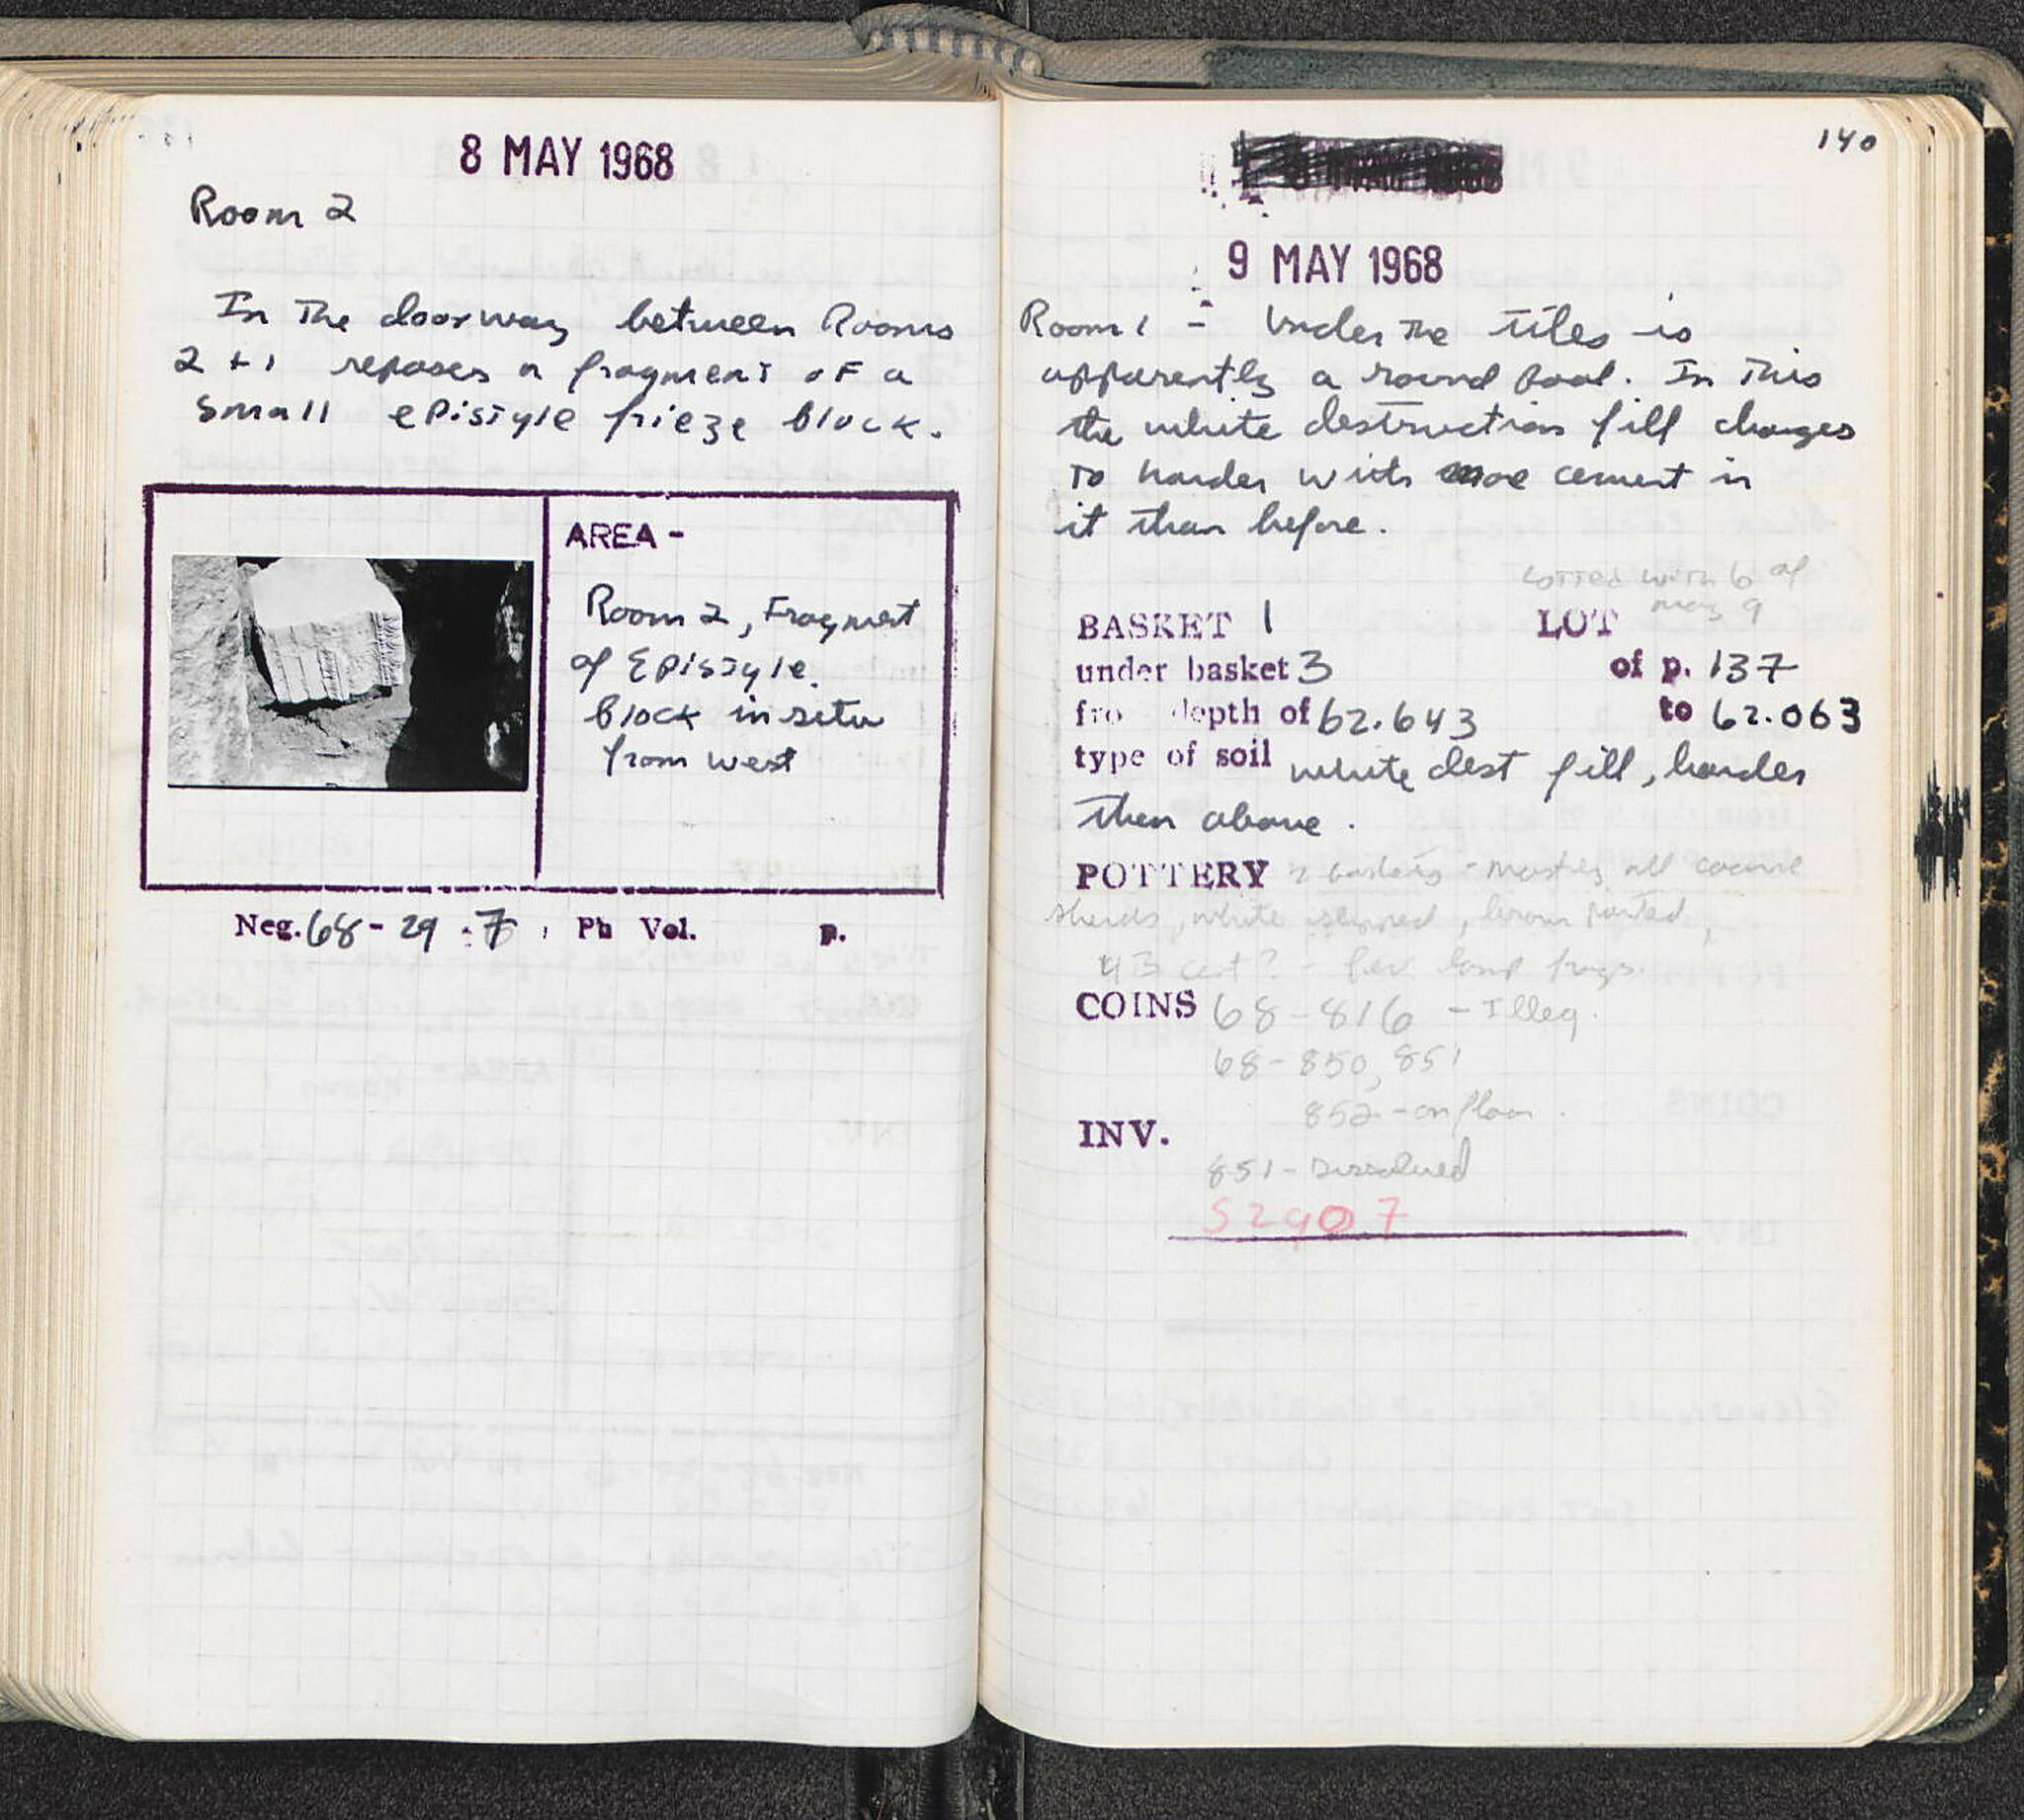 8 MAY 1968
Room 2
In The doorway between Rooms
2 + 1 reposes a fragment of a
small epistyle frieze block.
AREA -
Room 2, Fragment
of Epistyle
block in situ
from west
Neg. 68 - 29 : 7 , Ph Vol. p.
140
9 MAY 1968
Room 1 - Under The tiles is
apparently a round pool. In This
the white destruction fill changes
To harder with more cement in
it than before.
Lotted with 6 of
May 9
BASKET 1 LOT
under basket 3 of p. 137
fro depth of 62.643 to 62.063
type of soil white dest fill, harder
then above.
POTTERY 2 baskets - mostly all coarse
sherds, white slipped, brown painted,
4th cent? - few lamp frags.
COINS 68 - 816 - Illeg.
68 - 850, 851
852 - on floor.
INV.
851 - Dissolved
S 2907